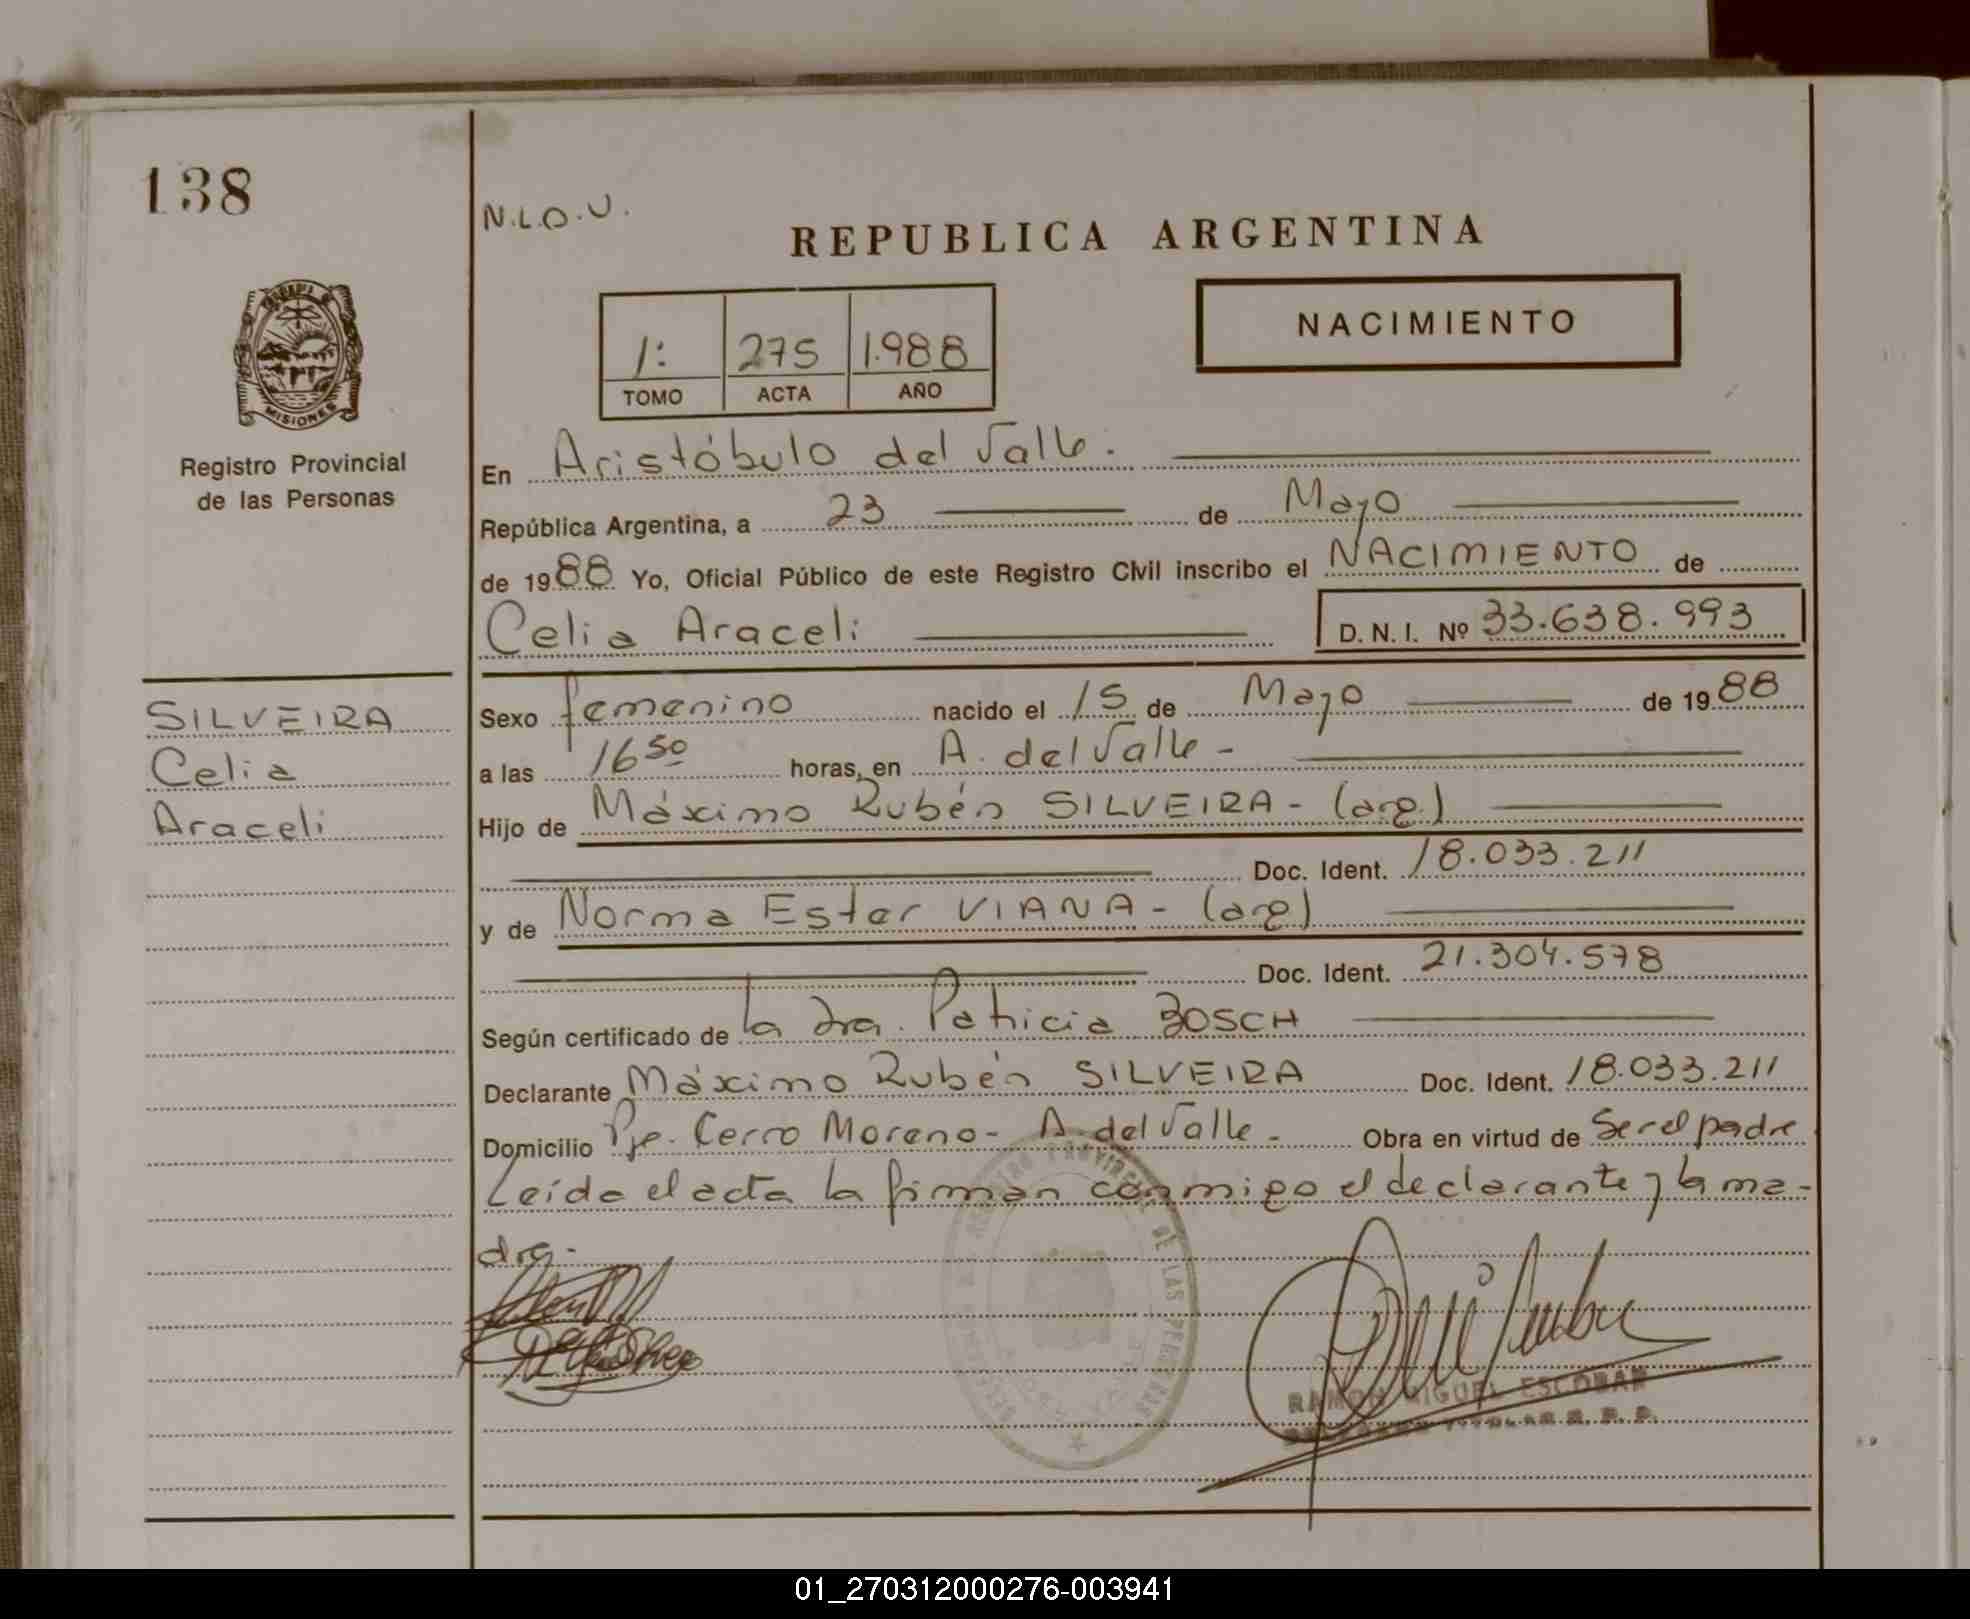 138
N.L.O.U.
REPUBLICA ARGENTINA
NACIMIENTO
1: 275 1.988
TOMO ACTA AÑO
MISIONES
Registro Provincial
de las Personas
En Aristóbulo del Valle.
República Argentina, a 23 de Mayo
de 1988 Yo, Oficial Público de este Registro Civil inscribo el NACIMIENTO de
Celia Araceli D.N.I. Nº 33.638.993
SILVEIRA
Celia
Araceli
Sexo femenino nacido el 15 de Mayo de 1988
a las 16 50 horas, en A. del Valle -
Hijo de Máximo Rubén SILVEIRA - (arg.)
Doc. Ident. 18.033.211
y de Norma Ester VIANA - (arg)
Doc. Ident. 21.304.578
Según certificado de la dra. Patricia BOSCH
Declarante Máximo Rubén SILVEIRA Doc. Ident. 18.033.211
Domicilio Pje. Cerro Moreno - A. del Valle - Obra en virtud de Ser el padre
Leída el acta la firman conmigo el declarante y la ma-
dre.-
REGISTRO PROVINCIAL DE LAS PERSONAS
RAMON MIGUEL ESCOBAR
TITULAR R. P. P.
01_270312000276-003941